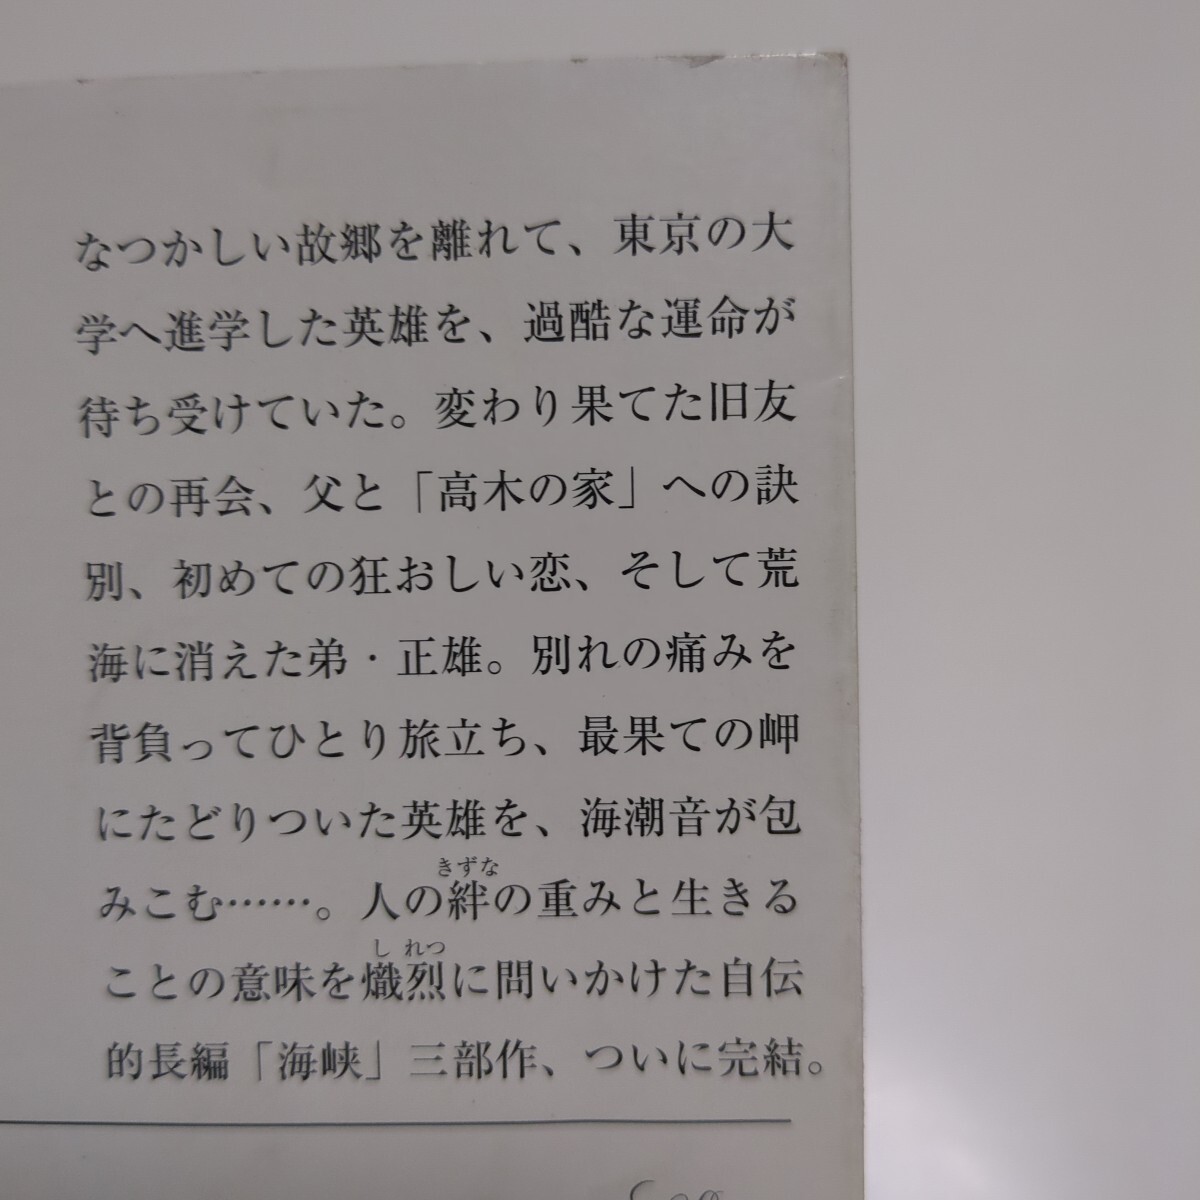 なつかしい故郷を離れて、東京の大
学へ進学した英雄を、過酷な運命が
待ち受けていた。変わり果てた旧友
との再会、父と「高木の家」への訣
別、初めての狂おしい恋、そして荒
海に消えた弟・正雄。別れの痛みを
背負ってひとり旅立ち、最果ての岬
にたどりついた英雄を、海潮音が包
きずな
みこむ……。人の絆の重みと生きる
しれつ
ことの意味を熾烈に問いかけた自伝
的長編「海峡」三部作、ついに完結。